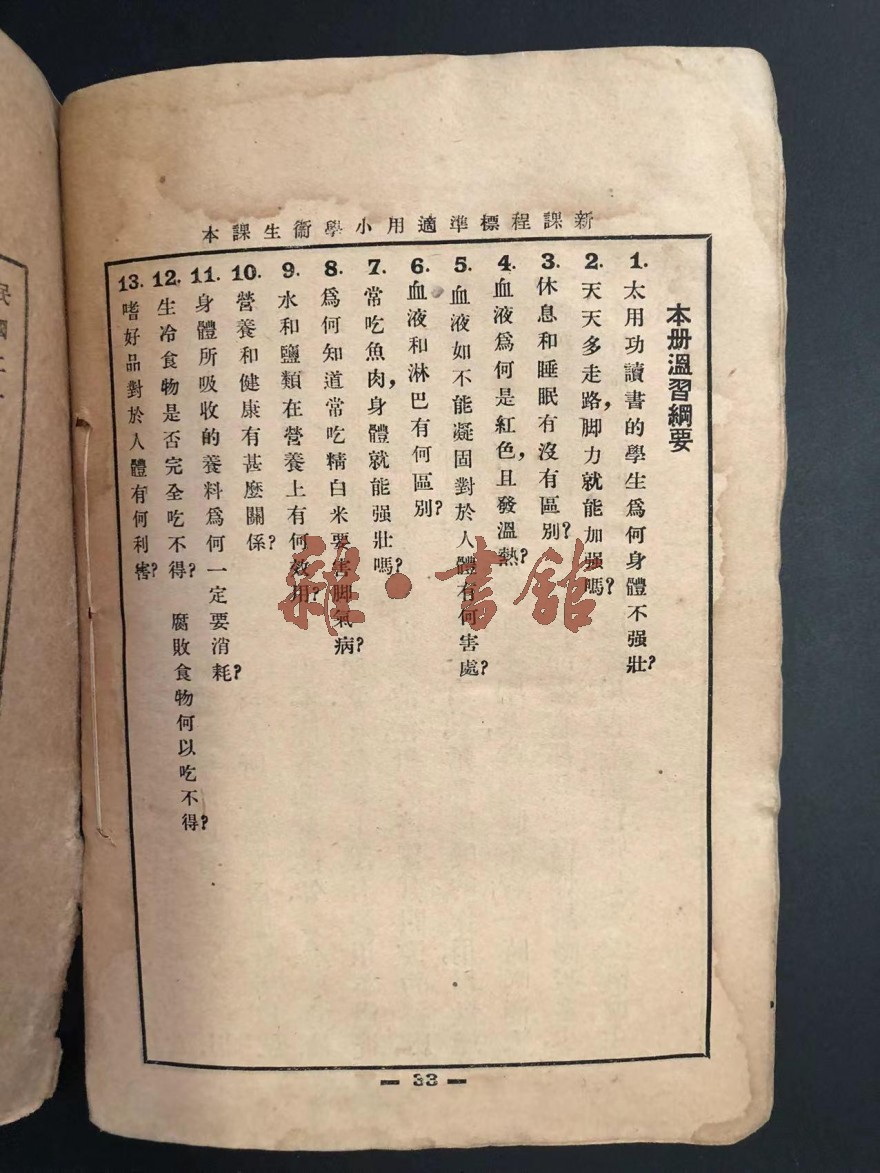 新課程標準適用小學衞生課本
本册溫習綱要
1. 太用功讀書的學生爲何身體不强壯?
2. 天天多走路,脚力就能加强嗎?
3. 休息和睡眠有沒有區別?
4. 血液爲何是紅色,且發溫熱?
5. 血液如不能凝固對於人體有何害處?
6. 血液和淋巴有何區別?
7. 常吃魚肉,身體就能强壯嗎?
8. 爲何知道常吃精白米要害脚氣病?
9. 水和鹽類在營養上有何效用?
10. 營養和健康有甚麼關係?
11. 身體所吸收的養料爲何一定要消耗?
12. 生冷食物是否完全吃不得? 腐敗食物何以吃不得?
13. 嗜好品對於人體有何利害?
— 33 —
雜·書館
民國二十